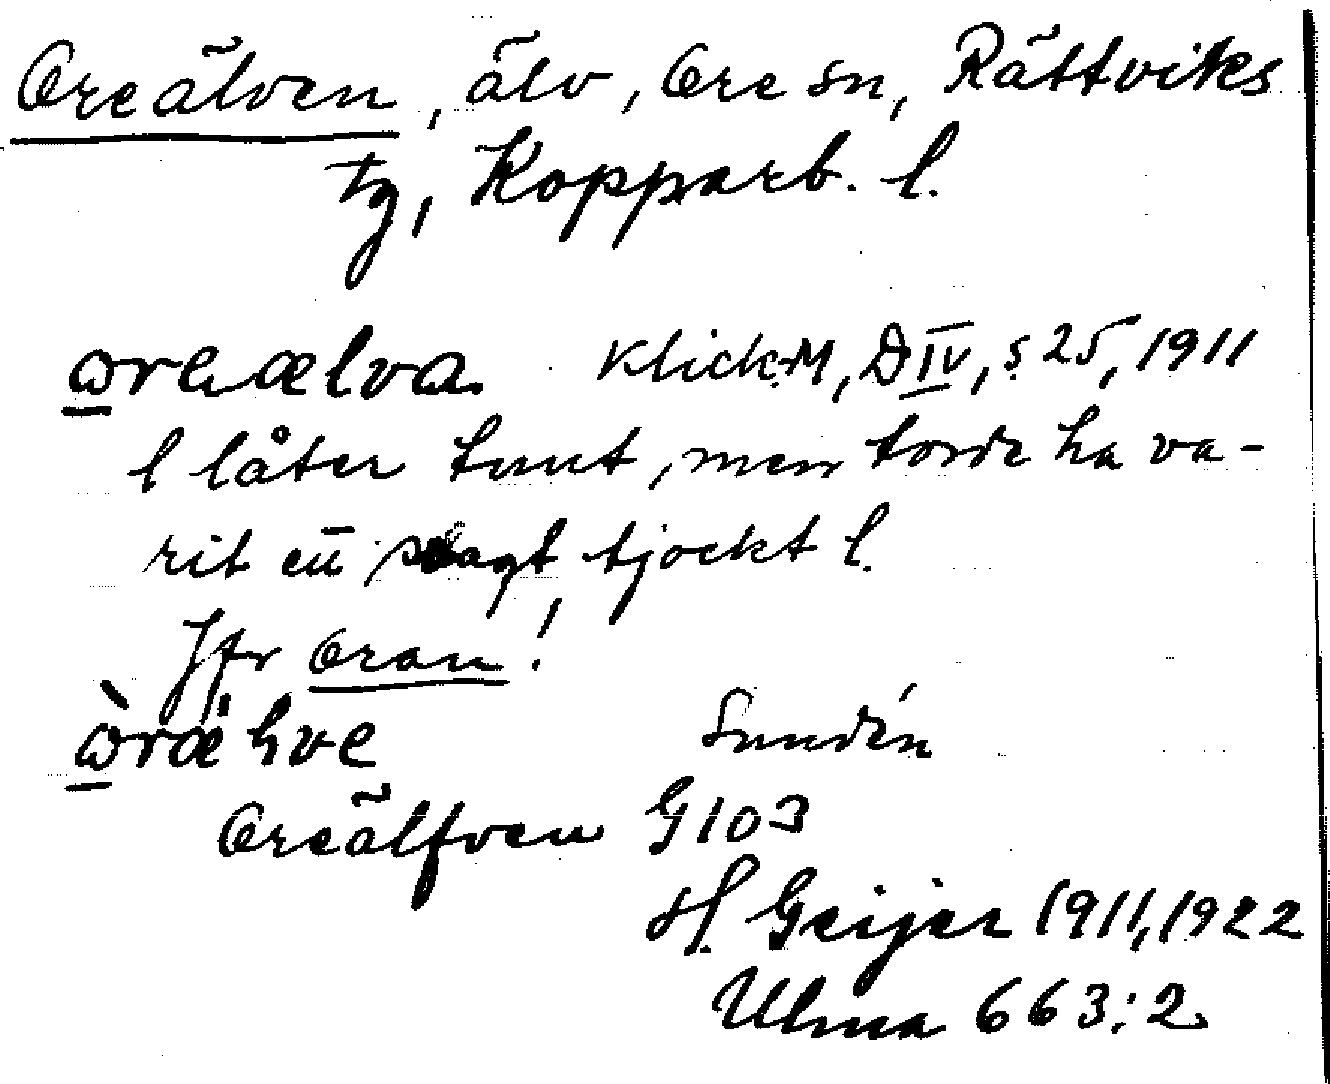 Oreälven, älv, Ore sn, Rättviks
tg, Kopparb. l.
ωreælva. Klick-M, D IV, s. 25, 1911
l låter tunt, men torde ha va-
rit en slagt tjockt l.
Jfr Oran!
ὼræhve Sundén
Oreälfven G 103
H. Geijer 1911, 1922
Ulma 663:2